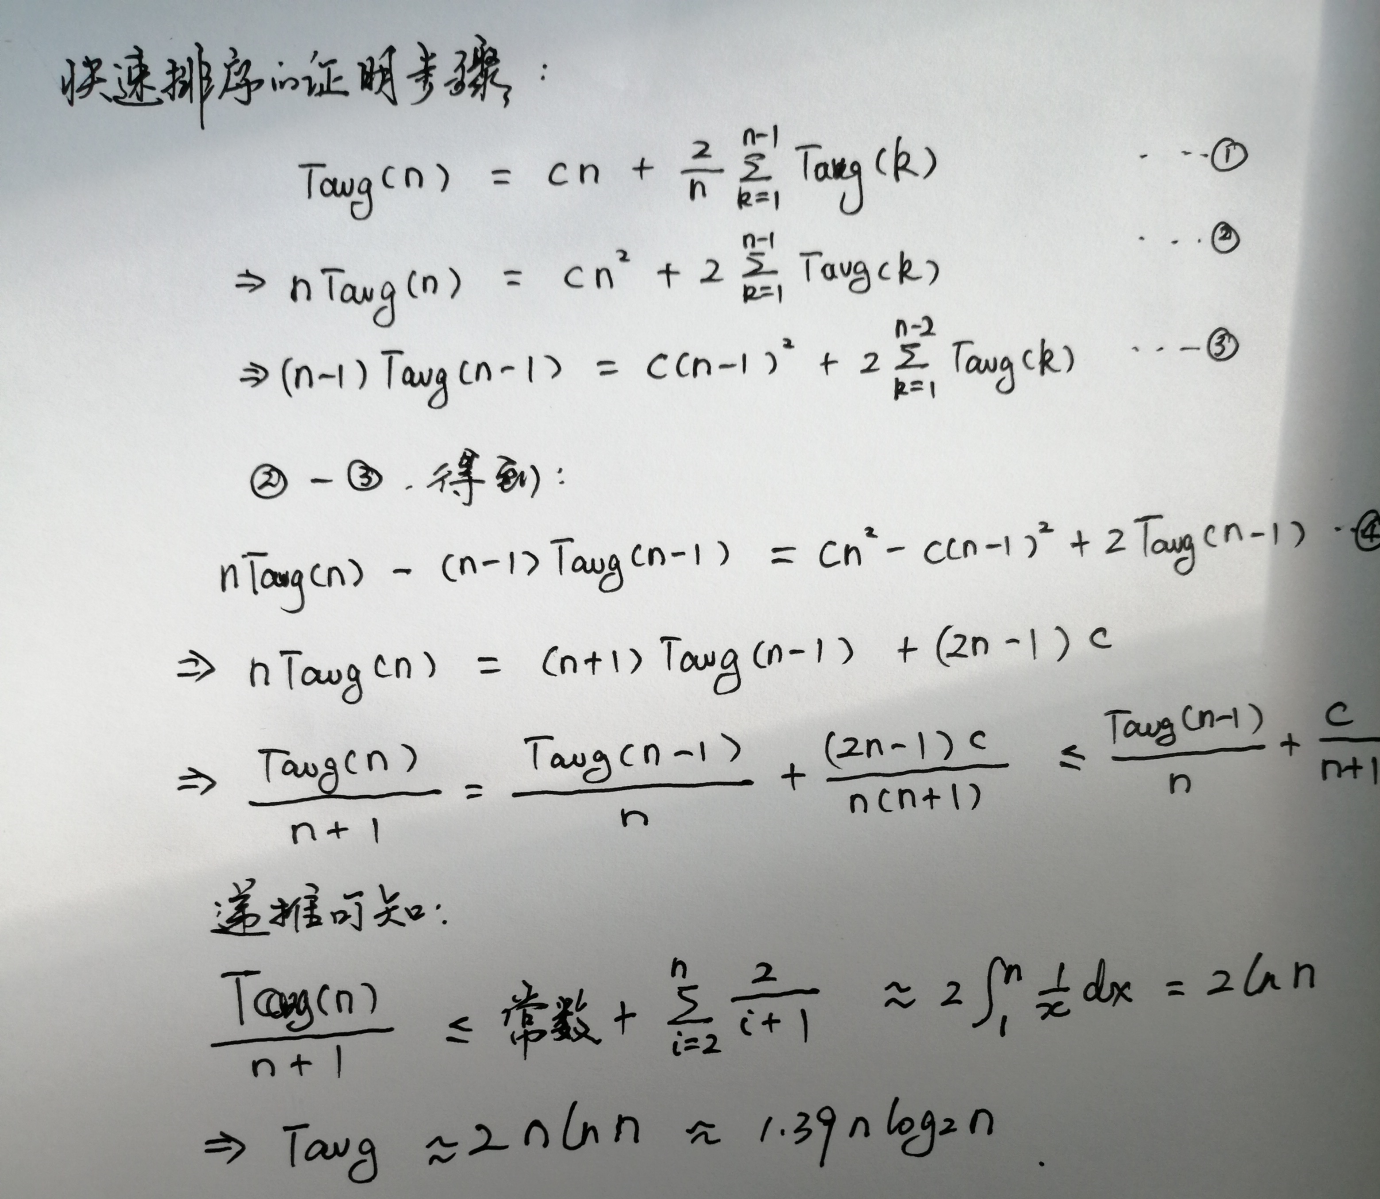 快速排序的证明步骤:
Tavg(n) = cn + 2/n ∑_{k=1}^{n-1} Tavg(k) ...①
⇒ nTavg(n) = cn² + 2 ∑_{k=1}^{n-1} Tavg(k) ...②
⇒ (n-1) Tavg(n-1) = c(n-1)² + 2 ∑_{k=1}^{n-2} Tavg(k) ...③
② - ③. 得到:
nTavg(n) - (n-1) Tavg(n-1) = cn² - c(n-1)² + 2 Tavg(n-1) ..④
⇒ nTavg(n) = (n+1) Tavg(n-1) + (2n-1) c
⇒ Tavg(n)/(n+1) = Tavg(n-1)/n + (2n-1)c/(n(n+1)) ≤ Tavg(n-1)/n + c/(n+1)
递推可知:
Tavg(n)/(n+1) ≤ 常数 + ∑_{i=2}^{n} 2/(i+1) ≈ 2 ∫_1^n 1/x dx = 2 ln n
⇒ Tavg ≈ 2 n ln n ≈ 1.39 n log₂ n .